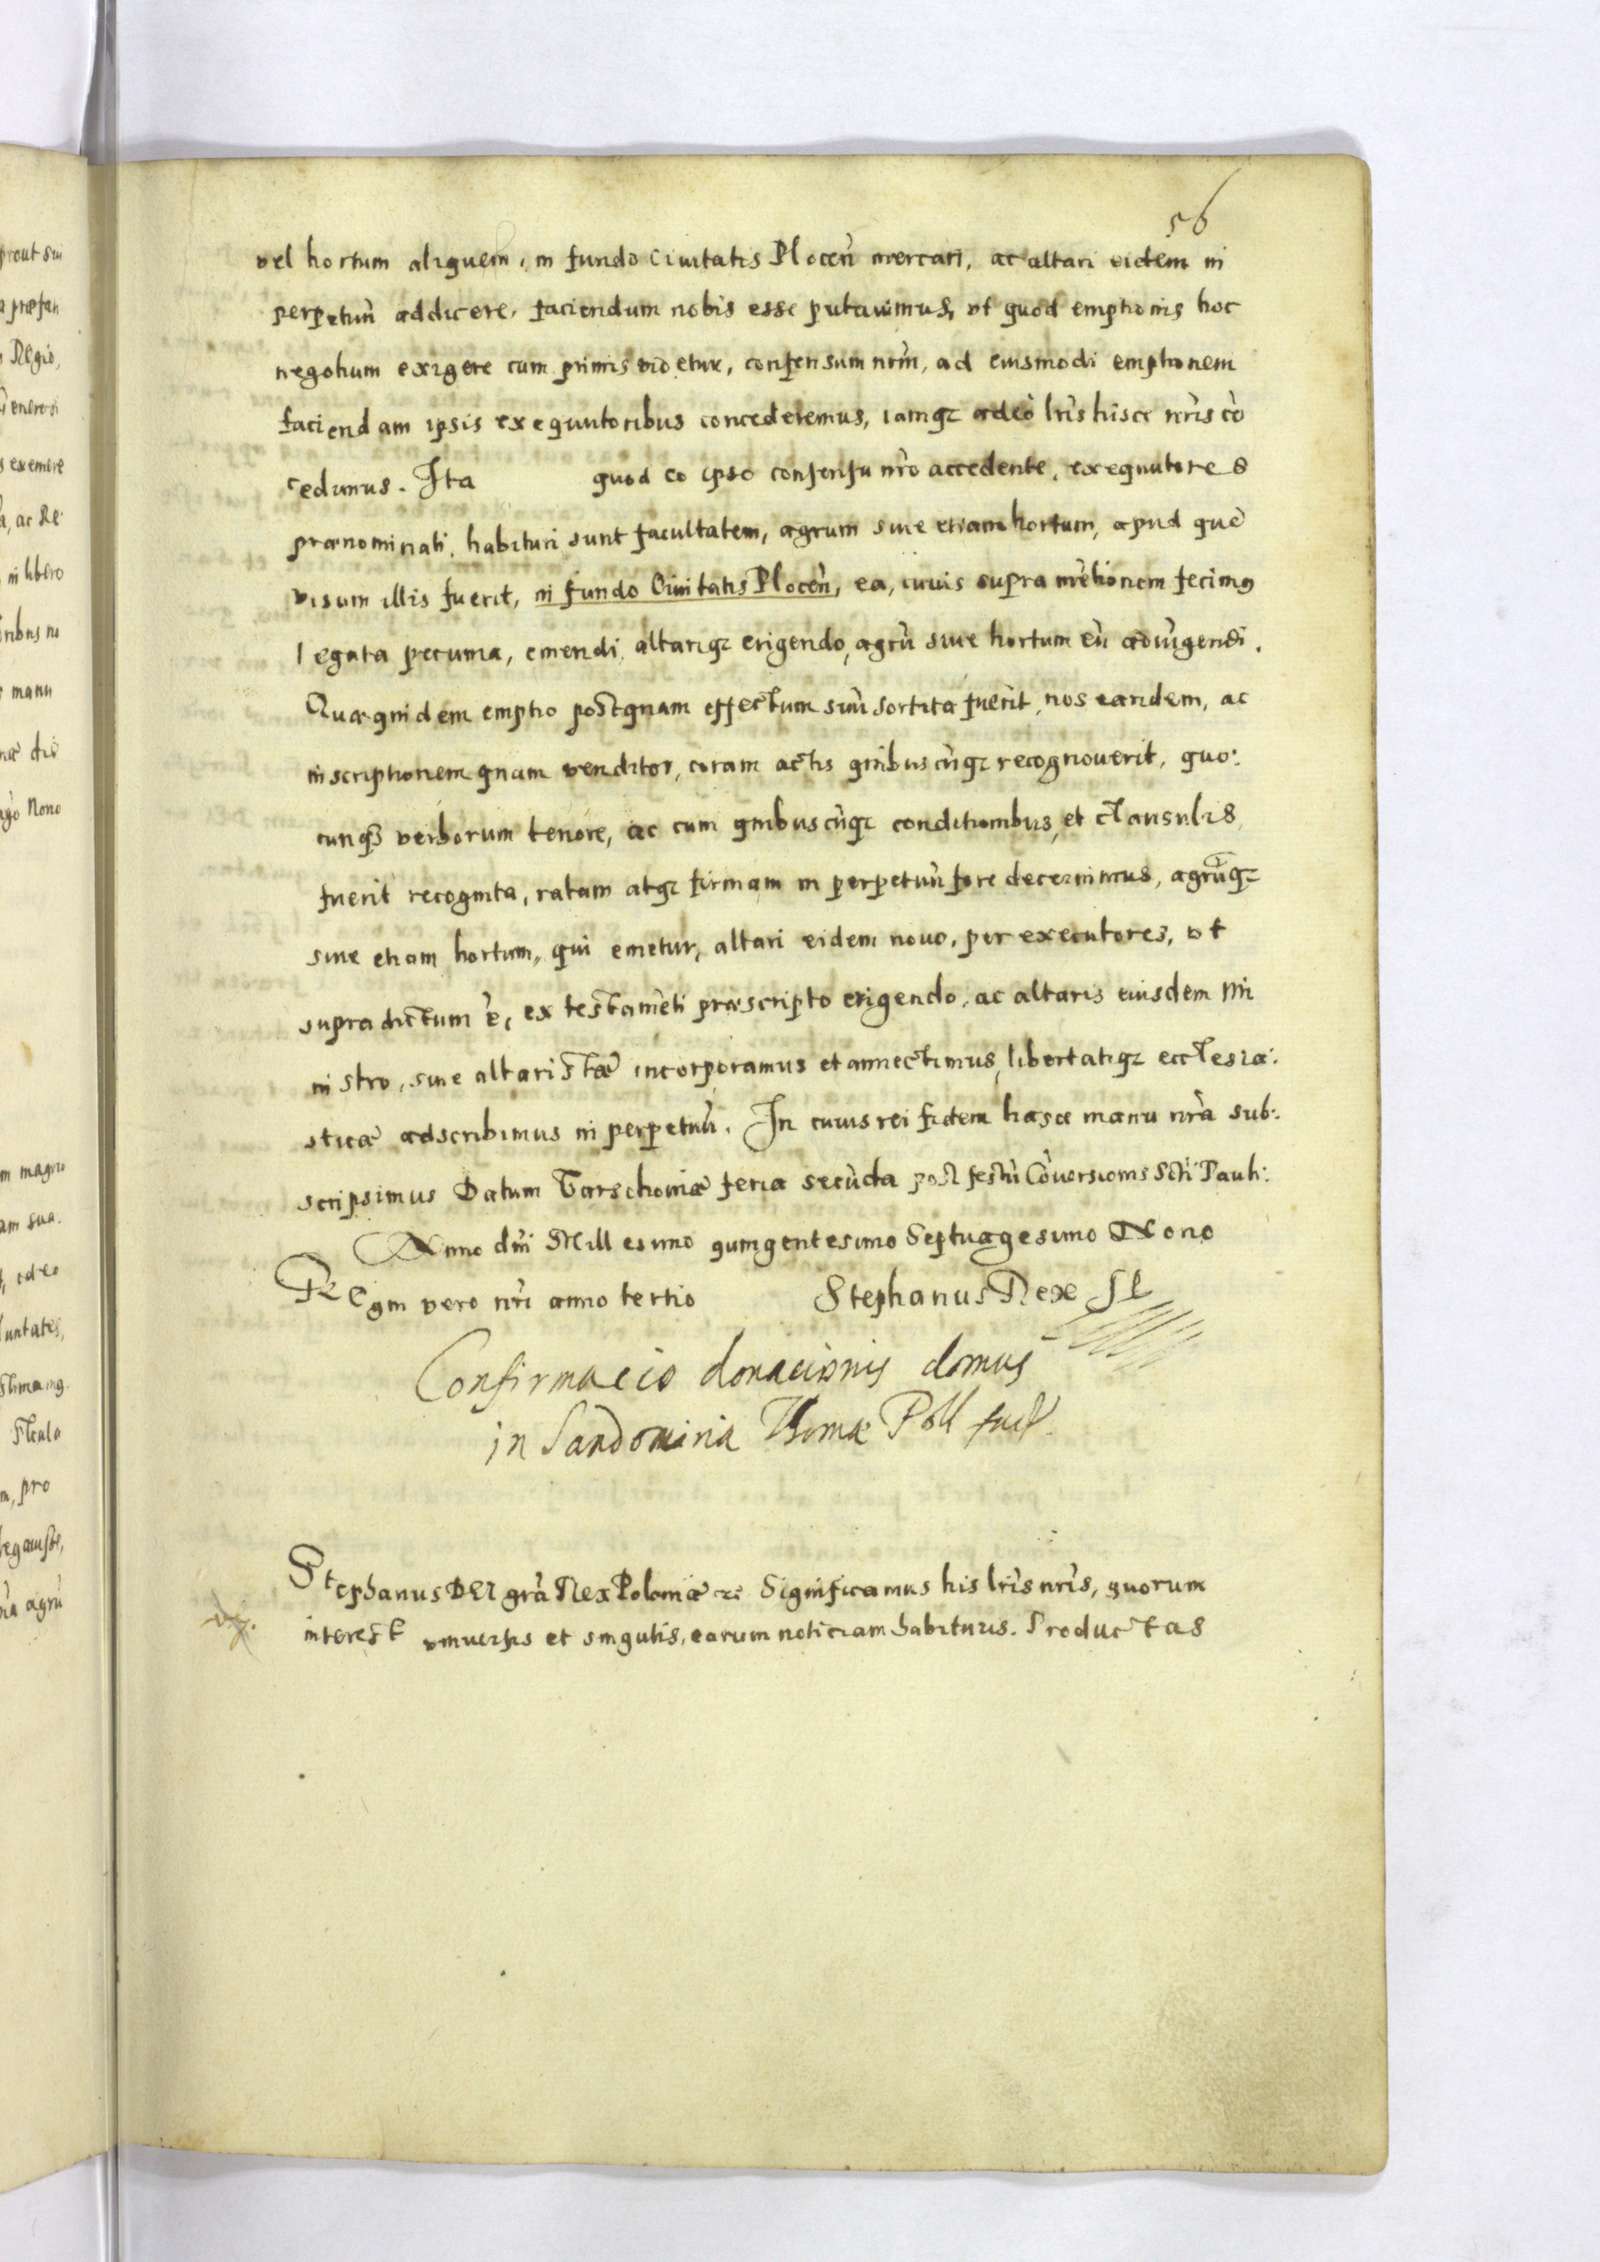 56
vel hortum aliquem, in fundo Civitatis Plocen̄ mercari, ac altari eidem in
perpetuū addicere, faciendum nobis esse putavimus, vt quod emptionis hoc
negotium exigere cum primis videtur, consensum nrm̄, ad eiusmodi emptionem
faciendam ipsis exequutoribus concederemus, iamq₃ adeò lrīs hisce nrīs cō
cedimus. Ita quod eo ipso consensu nrō accedente, exequutores
prænominati, habituri sunt facultatem, agrum sive etiam hortum, apud quē
visum illis fuerit, in fundo Civitatis Plocen̄, ea, cuius supra mētionem fecimꝰ
legata pecunia, emendi, altariq₃ erigendo, agrū sive hortum eū adiūgendi.
Quæquidem emptio postquam effectum suū sortita fuerit, nos eandem, ac
inscriptionem quam venditor, coram actis quibuscūq₃ recognoverit, quo:
cunq₃ verborum tenore, ac cum quibuscūq₃ conditionibus, et clausulis
fuerit recognita, ratam atq₃ firmam in perpetuū fore decernimus, agrūq₃
sive etiam hortum, qui emetur, altari eidem novo, per executores, vt
supradictum ē, ex testamēti præscripto erigendo, ac altaris eiusdem mi
nistro, sive altaristæ incorporamus et annectimus, libertatiq₃ ecclesia:
sticæ adscribimus in perpetuū. In cuius rei fidem hasce manu nrā sub:
scripsimus Datum Varschoviæ feria secūda post festū Cōversionis Scti Pauli:
Anno dnī Millesimo quingentesimo Septuagesimo Nono
Regni vero nrī anno tertio Stephanus Rex SS
Confirmacio donacionis domus
in Sandomiria Thomæ Poll
Stephanus DEI grā Rex Poloniæ etc Significamus his lrīs nrīs, quorum
interest vniversis et singulis, earum noticiam habituris. Productas